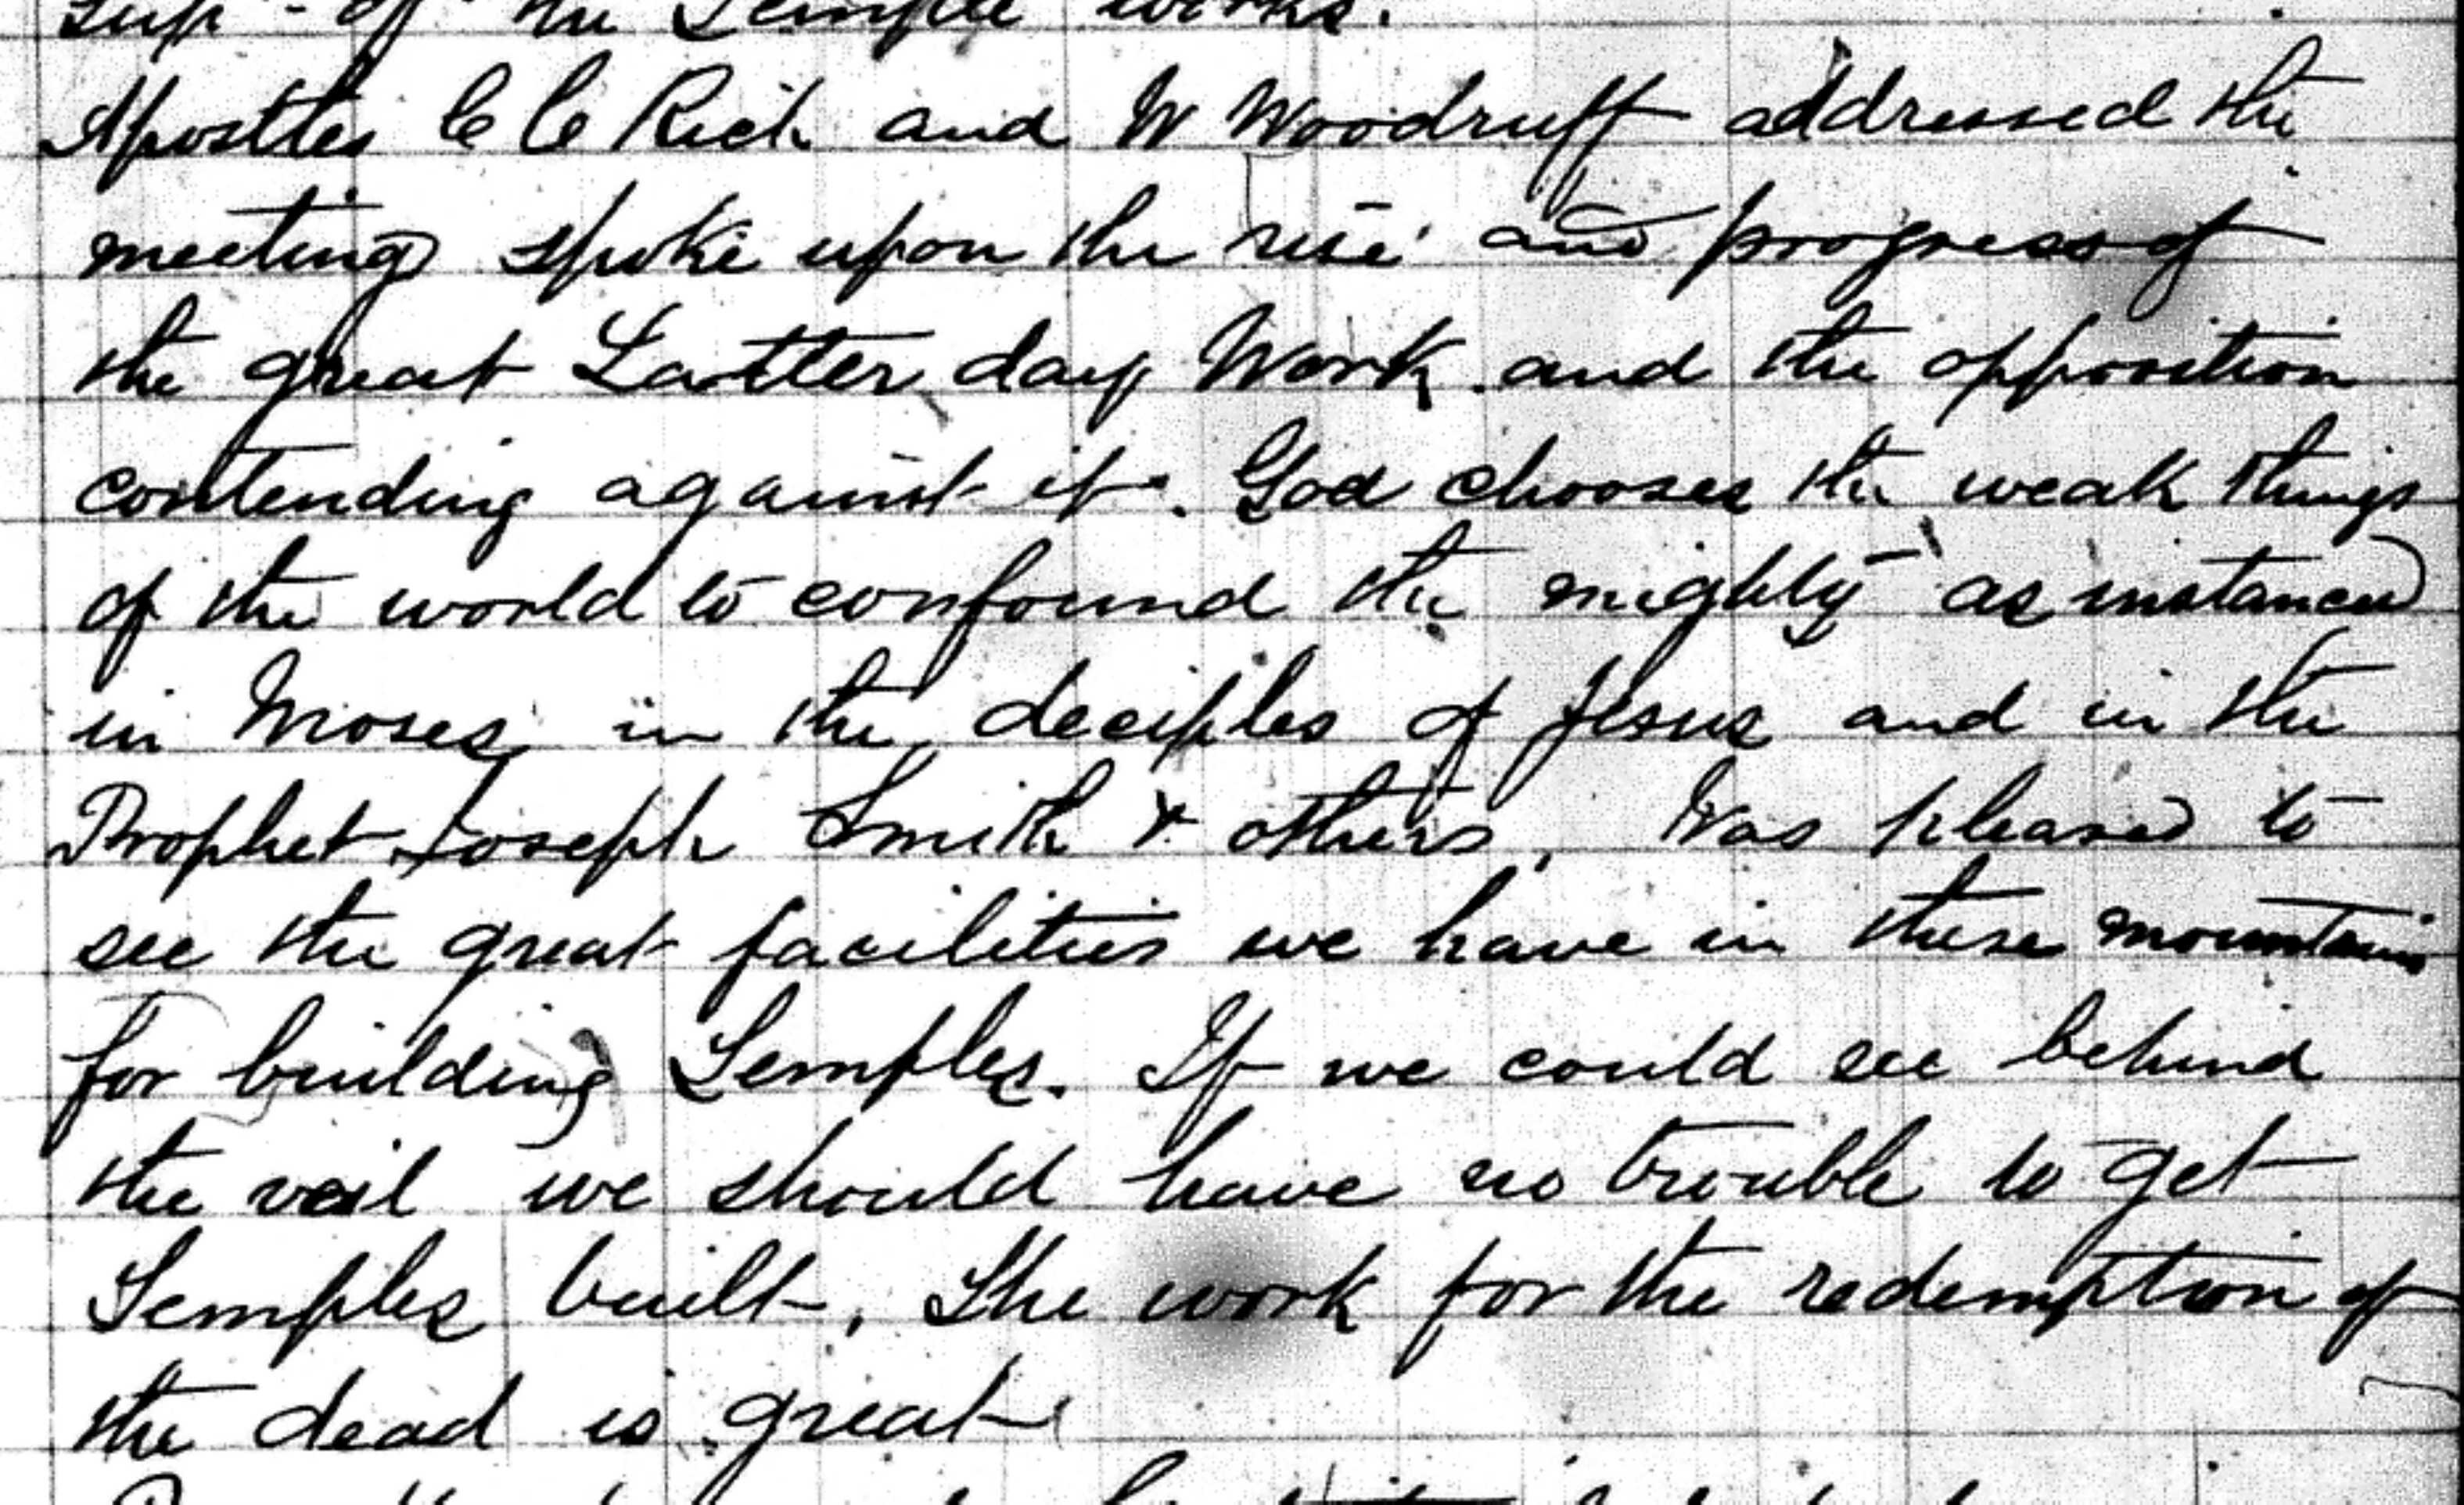 Supt of the Temple works.
Apostles C C Rich and W Woodruff addressed the
meeting spoke upon the rise and progress of
the great Latter day Work and the opposition
contending against it. God chooses the weak things
of the world to confound the mighty as instanced
in Moses in the deciples of Jesus and in the
Prophet Joseph Smith & others, Was pleased to
see the great facilities we have in these mountains
for building Temples. If we could see behind
the vail we should have no trouble to get
Temples built, The work for the redemption of
the dead is great